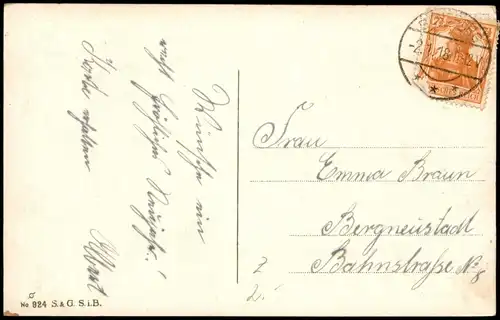 Wünsche ein
recht fröhliches Neujahr!
Karte erhalten
Albert
Frau
Emma Braun
Bergneustadt
Bahnstraße No 8
No. 924 S. & G. S. i. B.
-2.1.18